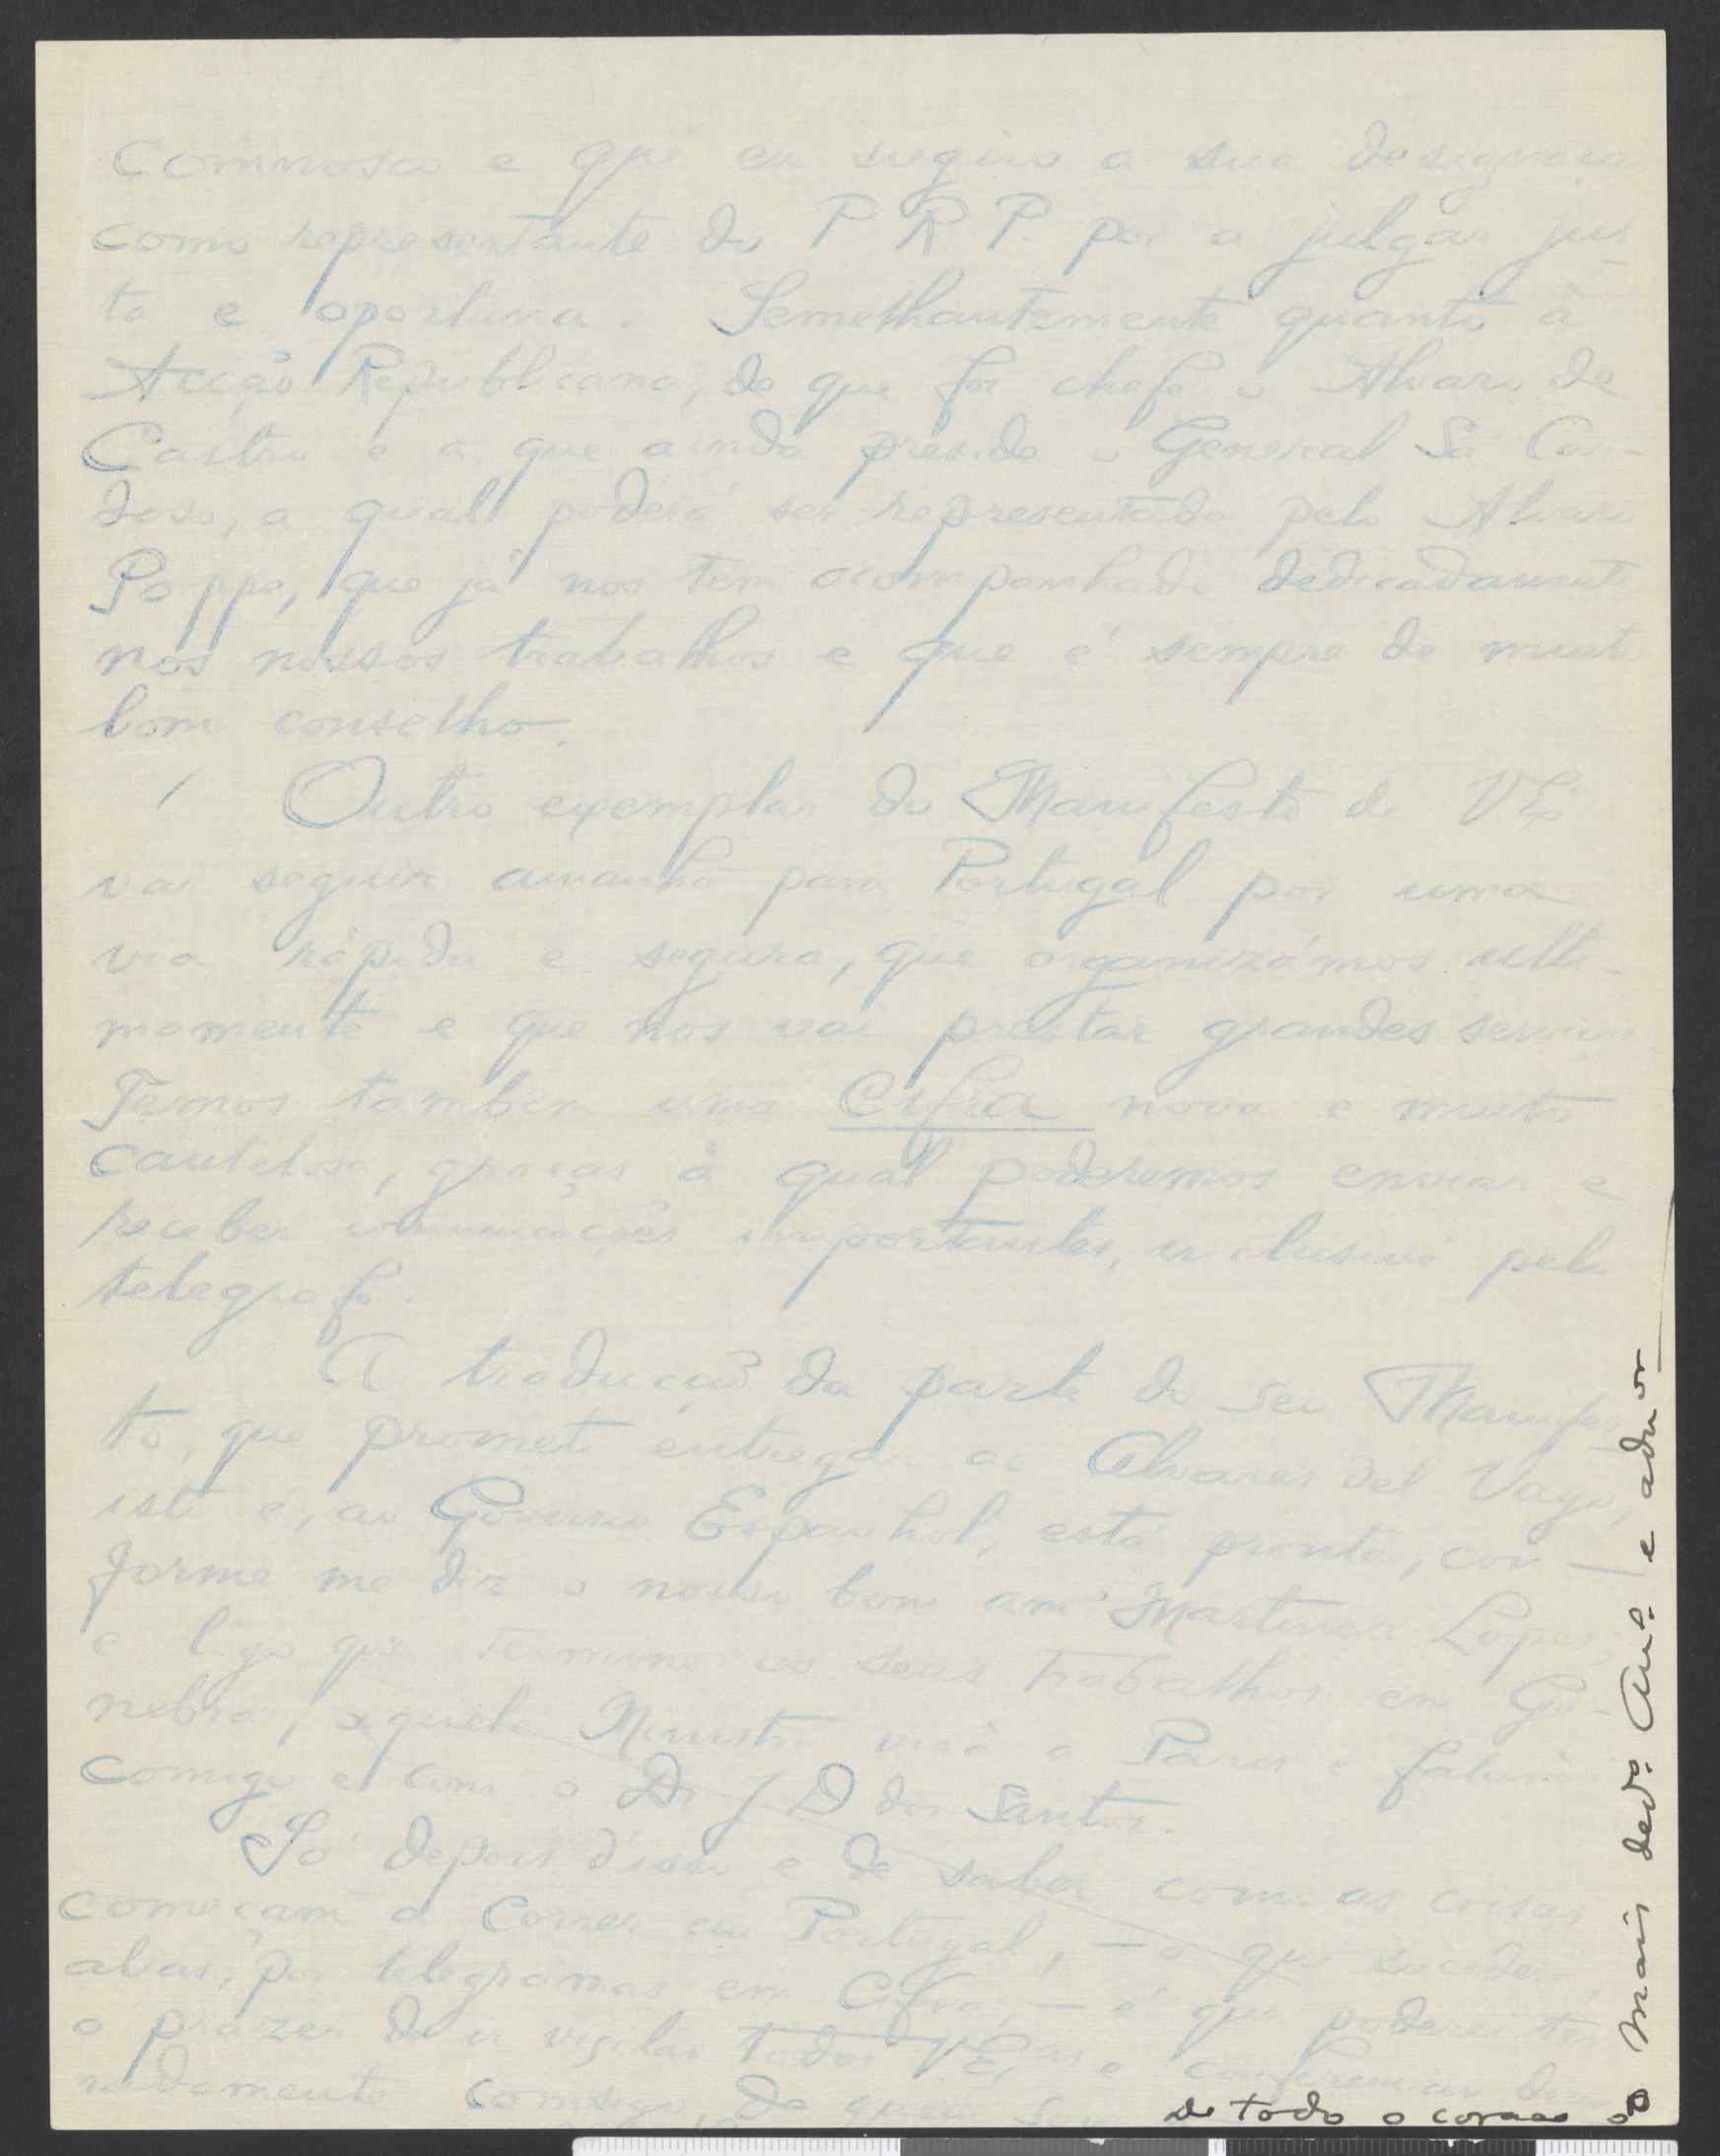 Comnosco e que eu sugiro a sua designação
como representante do P R P. por a julgar jus-
ta e oportuna. Semelhantemente quanto à
Acção Republicana, de que foi chefe o Alvaro de
Castro e a que ainda preside o General Sá Car-
doso, a qual poderá ser representada pelo Alvaro
Poppe, que já nos tem acompanhado dedicadamente
nos nossos trabalhos e que é sempre de muito
bom conselho.
Outro exemplar do Manifesto de V E
vai seguir amanhã para Portugal por uma
via rápida e segura, que organizámos ulti-
mamente e que nos vai prestar grandes serviços
Temos tambem uma Cifra nova e muito
cautelosa, graças à qual poderemos enviar e
receber comunicações importantes, inclusivé pelo
telegrafo.
A tradução da parte do seu Manifes-
to, que prometi entregar ao Alvares del Vayo,
isto é, ao Governo Espanhol, está pronta, con-
forme me diz o nosso bom amº Martinez Lopes,
e logo que termine os seus trabalhos em Ge-
nebra, aquele Ministro virá a Paris e falará
comigo e com o Dr J D dos Santos.
Só depois d'isso e de saber como as coisas
começam a correr em Portugal, — o que sucederá,
alias, por telegramas em Cifra, — é que poderei ter
o prazer de ir visitar todos V E, e conferenciar
comsigo, de quem sou
De todo o coração o
mais dedº. Amº. e admor